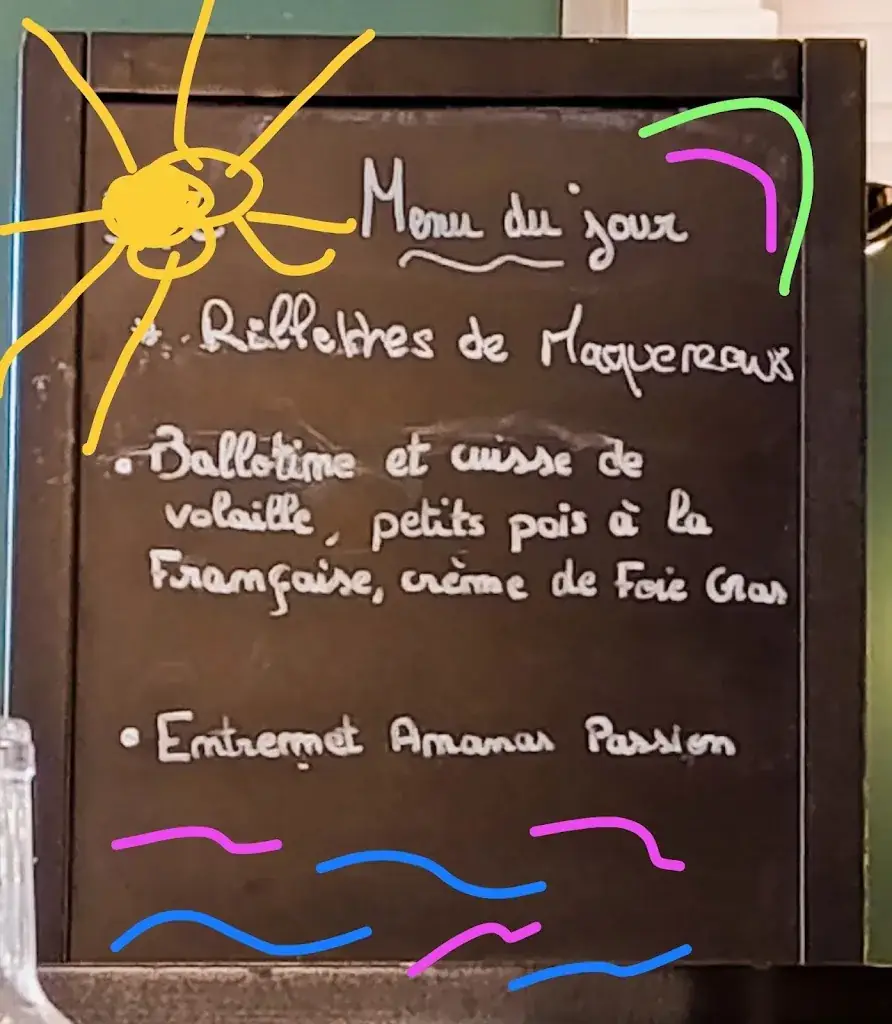 Menu du jour
Rillettes de Maquereaux
Ballotine et cuisse de
volaille, petits pois à la
Française, crème de Foie Gras
Entremet Ananas Passion